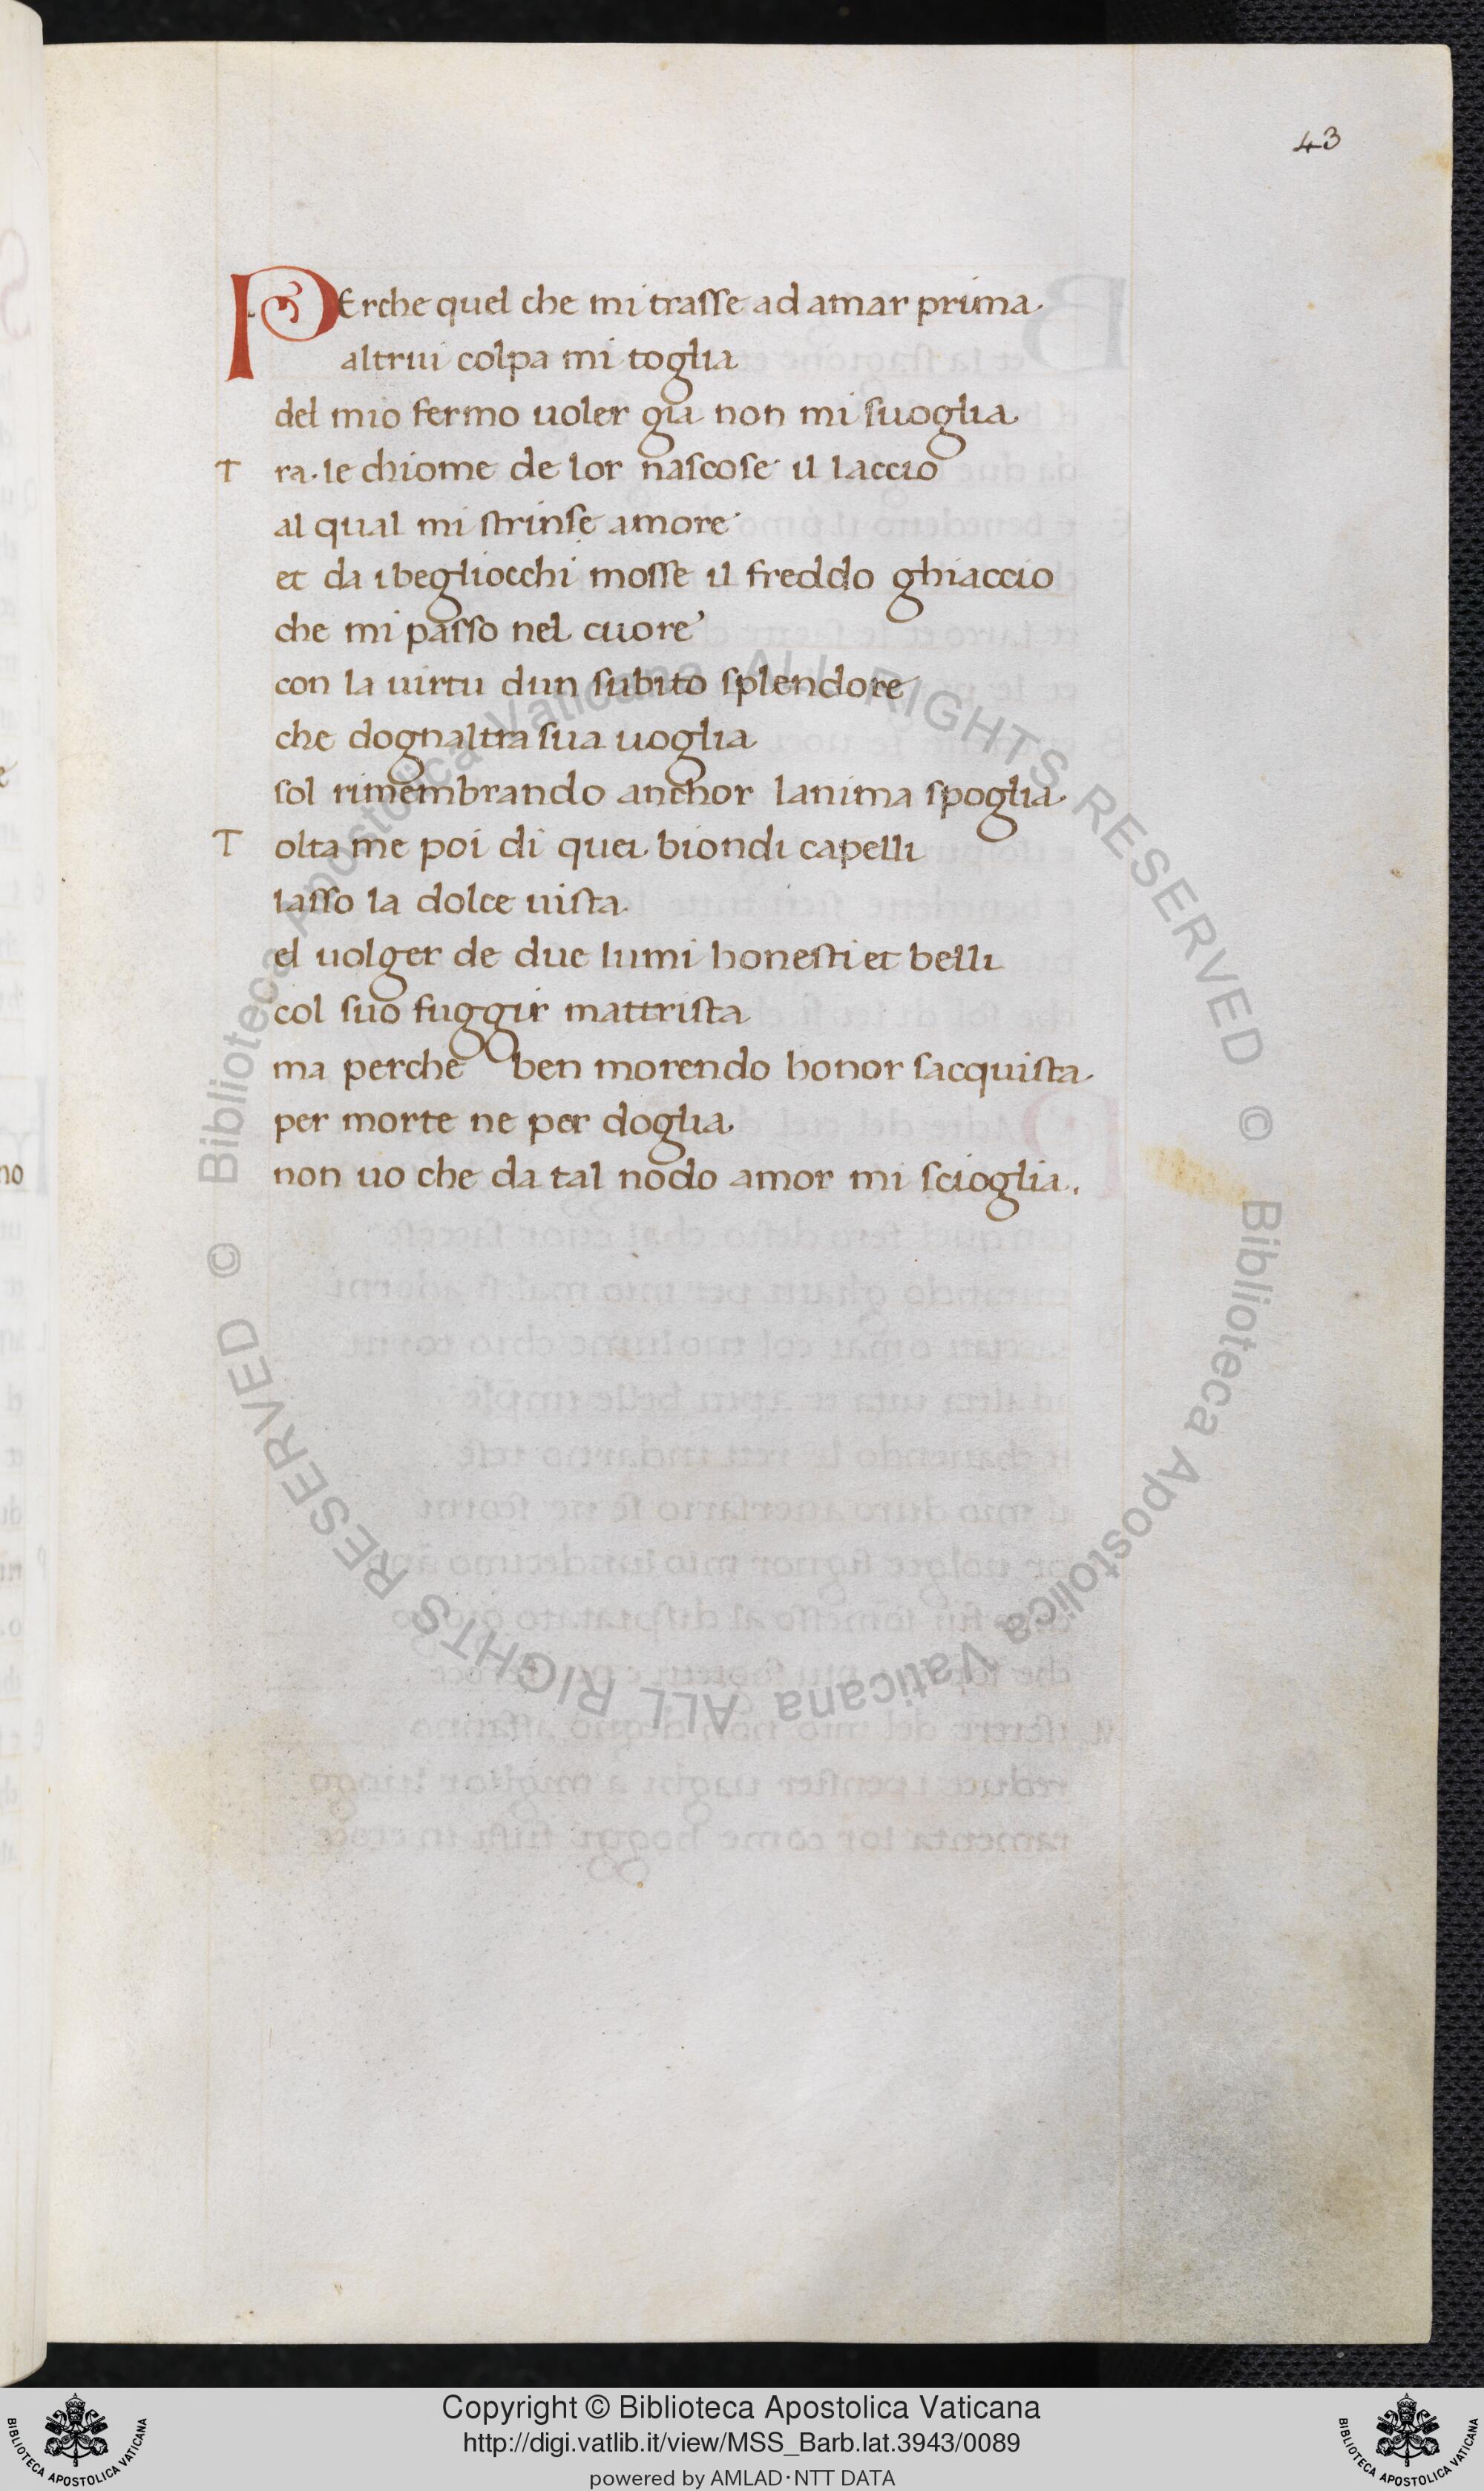 43
PErche quel che mi trasse ad amar prima
altrui colpa mi toglia
del mio fermo uoler gia non mi suoglia
Tra le chiome de lor nascose il laccio
al qual mi strinse amore
et da ibegliocchi mosse il freddo ghiaccio
che mi passo nel cuore
con la uirtu dun subito splendore
che dognaltra sua uoglia
sol rimembrando anchor lanima spoglia
Tolta me poi di quei biondi capelli
lasso la dolce uista
el uolger de due lumi honesti et belli
col suo fuggir mattrista
ma perche ben morendo honor sacquista
per morte ne per doglia
non uo che da tal nodo amor mi scioglia.
© Biblioteca Apostolica Vaticana ALL RIGHTS RESERVED
© Biblioteca Apostolica Vaticana ALL RIGHTS RESERVED
Copyright © Biblioteca Apostolica Vaticana
http://digi.vatlib.it/view/MSS_Barb.lat.3943/0089
powered by AMLAD·NTT DATA
BIBLIOTECA APOSTOLICA VATICANA
BIBLIOTECA APOSTOLICA VATICANA